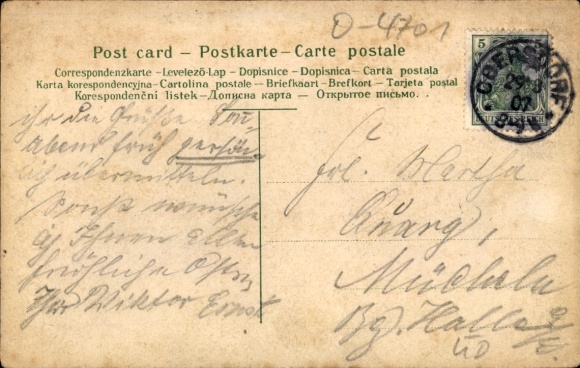 O-4701
Post card – Postkarte – Carte postale
Correspondenzkarte – Levelező-Lap – Dopisnice – Dopisnica – Carta postala
Karta korespondencyjna – Cartolina postale – Briefkaart – Brefkort – Tarjeta postal
Korespondenční listek – Дописна карта – Открытое письмо.
5
OBERSDORF
07
DEUTSCHES REICH
ihr die Grüße Sonn
abend früh persön
lich übermitteln.
Sonst wünsche
ich Ihnen Allen
fröhliche Ostern
Ihr Viktor Ernst
Frl. Martha
Quarg,
Mücheln
Bz. Halle a/S.